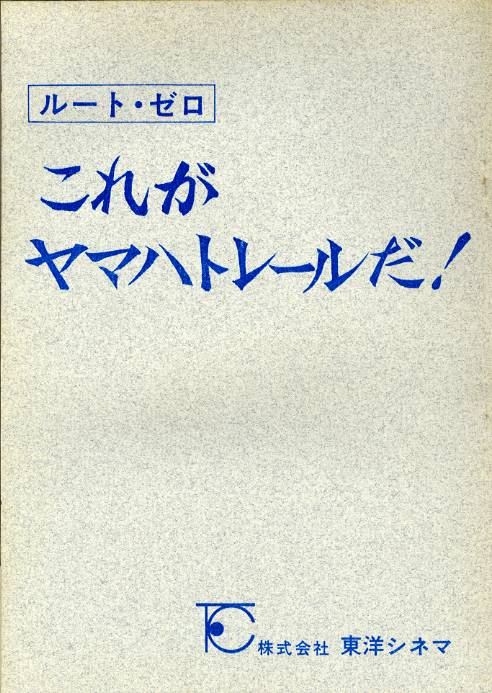 ルート・ゼロ
これが
ヤマハトレールだ！
TC
株式会社 東洋シネマ